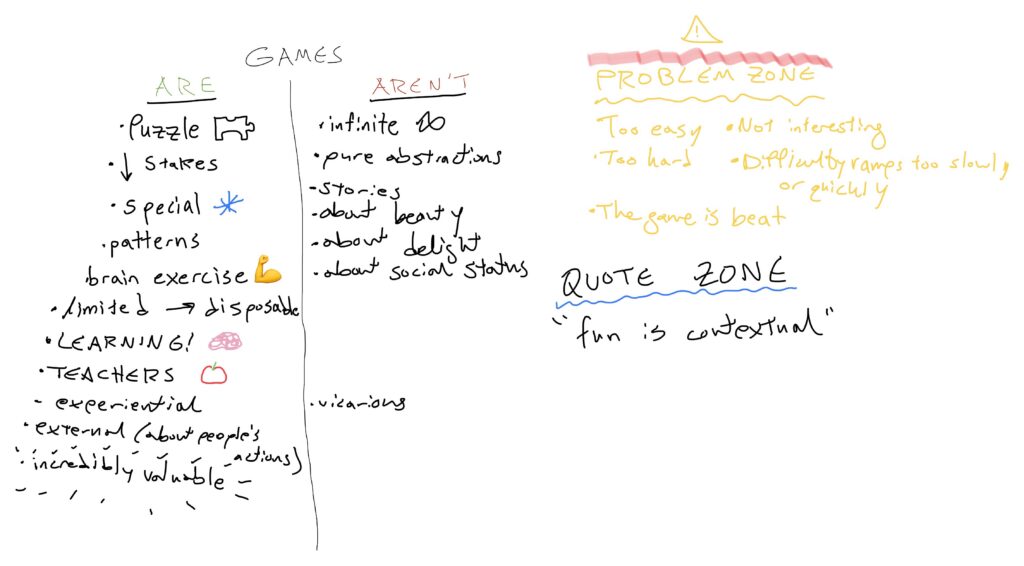 GAMES
ARE
• Puzzle
• ↓ Stakes
• special
• patterns
brain exercise
• limited → disposable
• LEARNING!
• TEACHERS
- experiential
• external (about people's
actions)
• incredibly valuable
AREN'T
• infinite
• pure abstractions
• stories
• about beauty
• about delight
• about social status
• vicarious
PROBLEM ZONE
Too easy
• Too hard
• The game is beat
• Not interesting
• Difficulty ramps too slowly
or quickly
QUOTE ZONE
"fun is contextual"